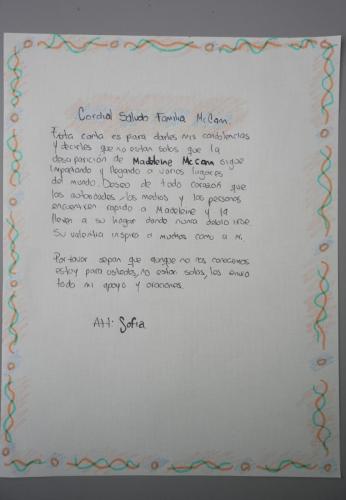 Cordial Saludo Familia McCam.
Esta carta es para darles mis condolencias
y decirles que no estan solos que la
desaparición de Madeleine McCam sigue
impactando y llegando a varios lugares
del mundo. Deseo de todo corazón que
las autoridades, los medios y las personas
encuentren rapido a Madeleine y la
lleven a su hogar donde nunca debio irse
Su valentia inspira a muchos como a mi.
Porfavor sepan que aunque no nos conocemos
estoy para ustedes, no estan solos, les envio
todo mi apoyo y oraciones.
Att: Sofia